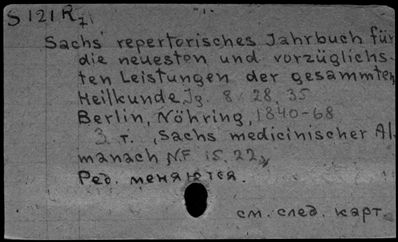 S 121 R71
Sachs' repertorisches Jahrbuch für
die neuesten und vorzüglichs-
ten Leistungen der gesammten
Heilkunde Jg. 8. 28. 35
Berlin, Nöhring, 1840-68
3 т. "Sachs medicinischer Al-
manach NF 15. 22"
Ред. меняются.
см. след. карт.